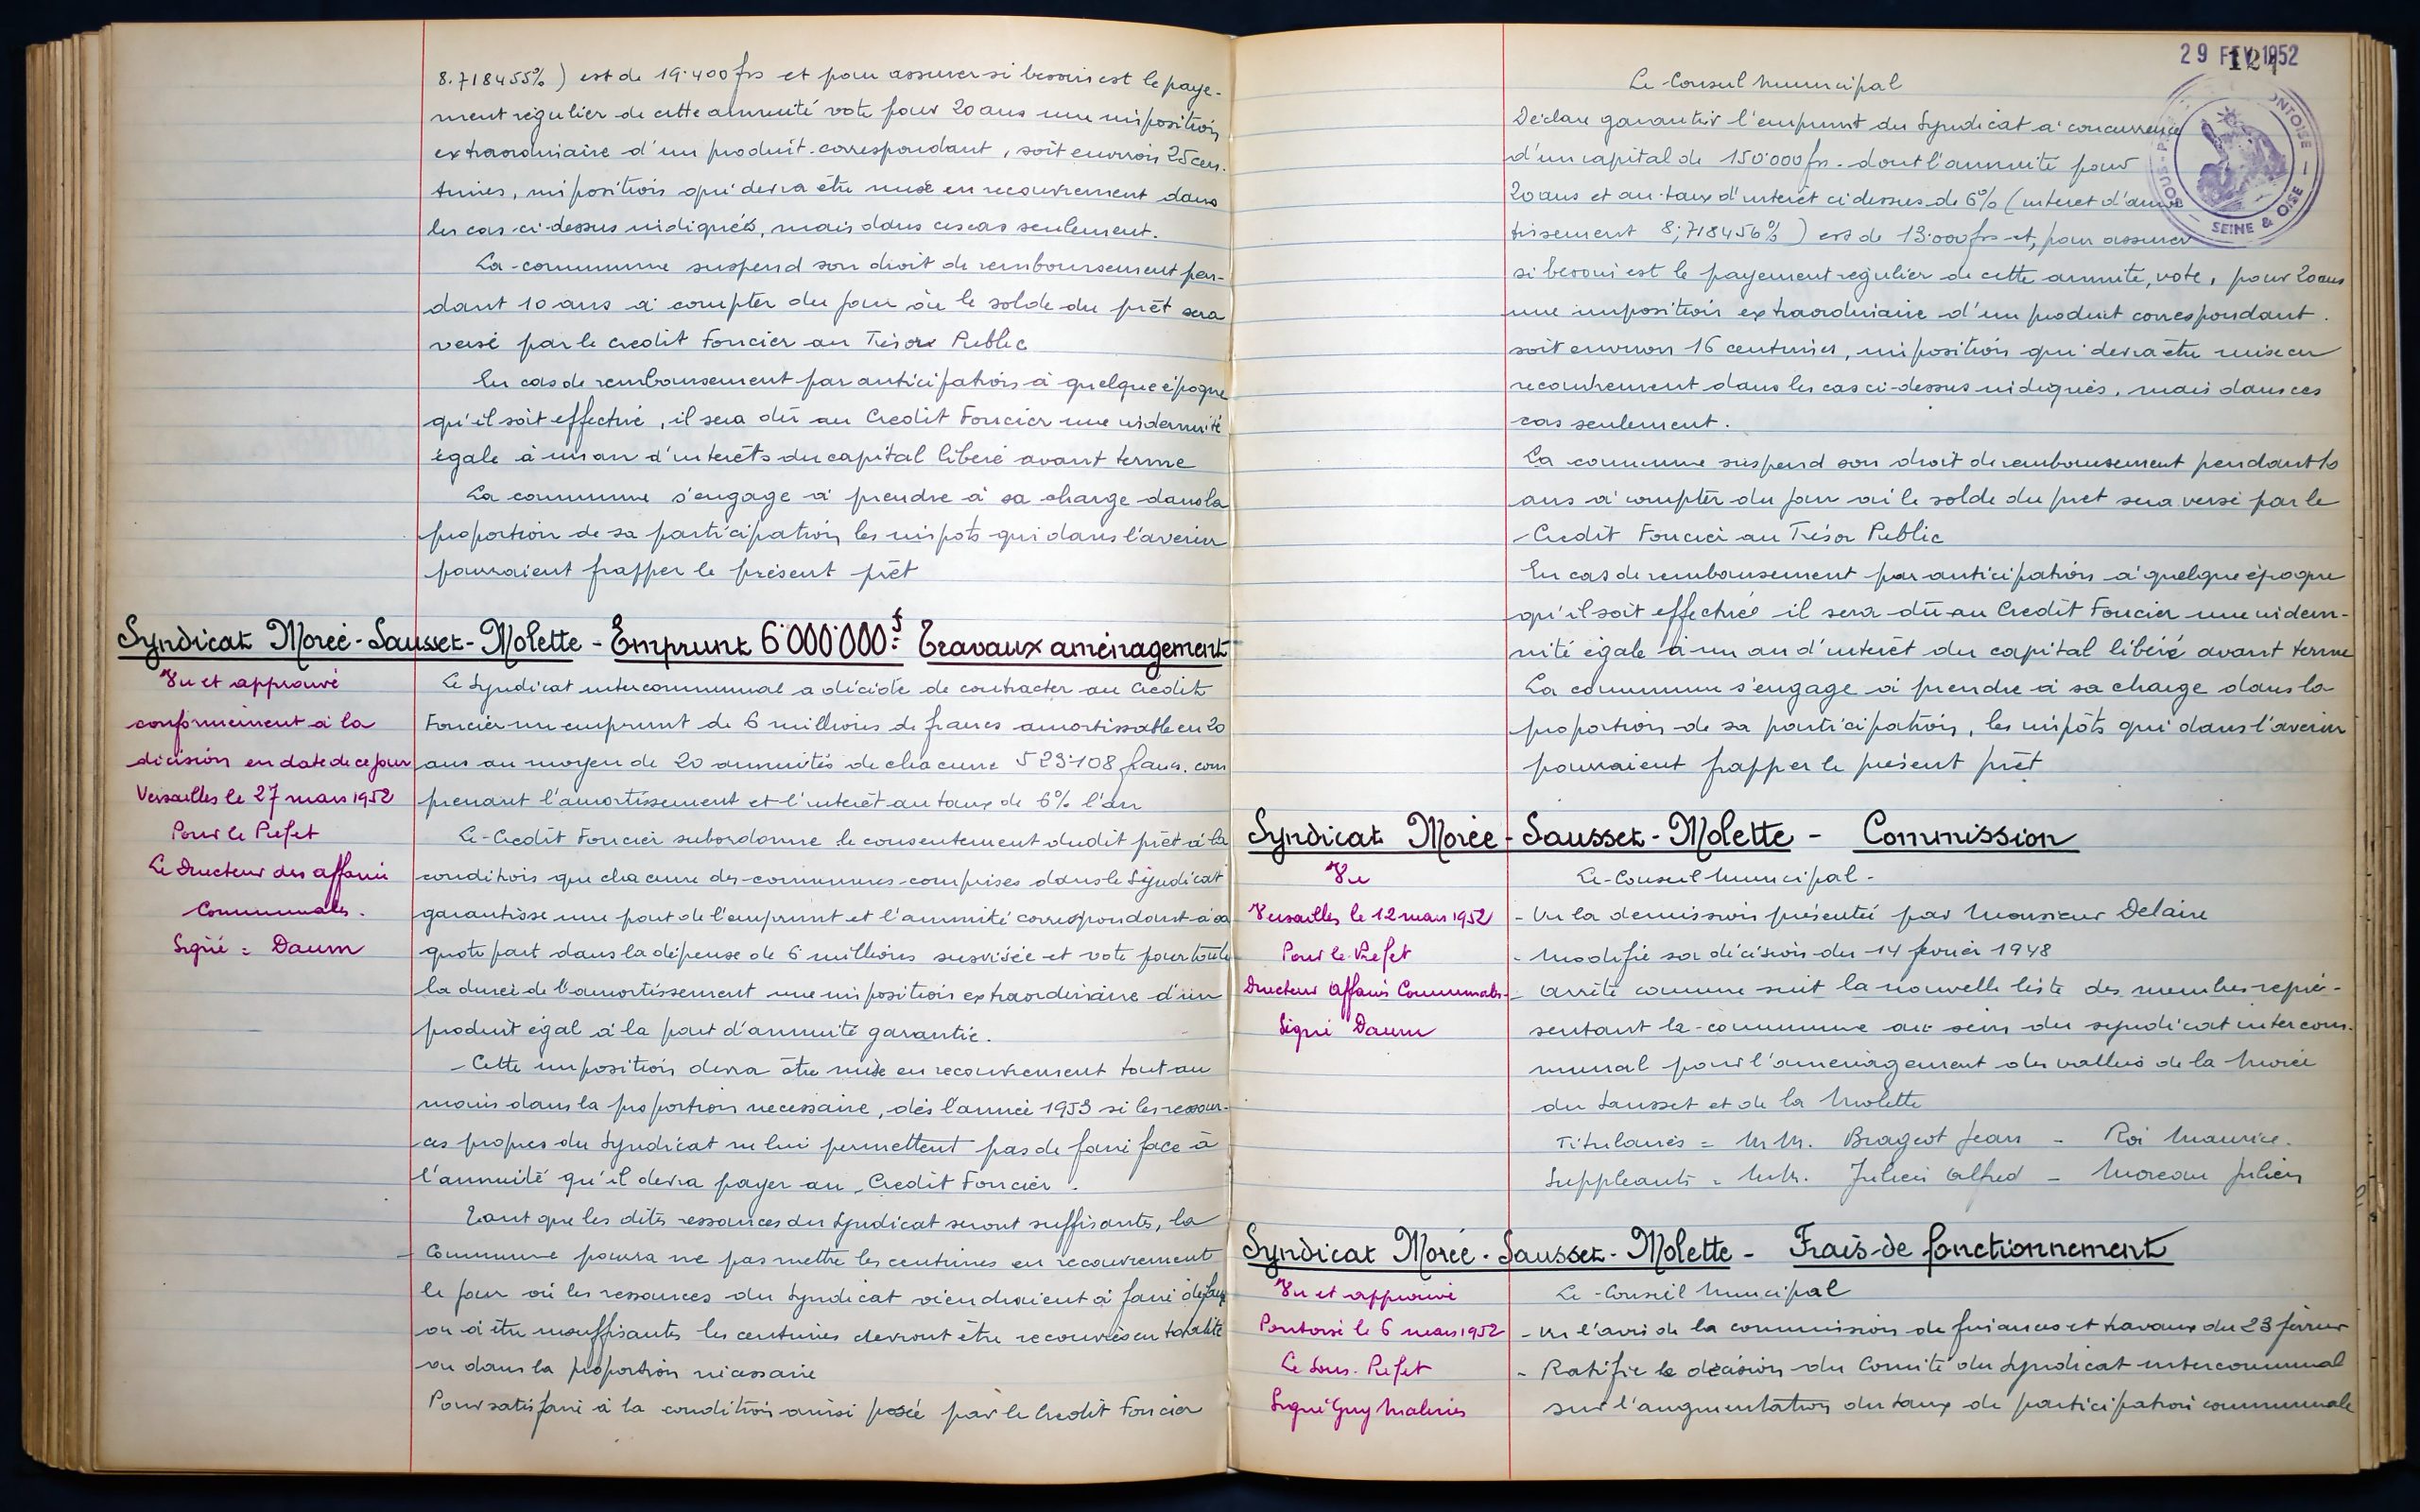 8.718455%) est de 19.400 frs et pour assurer si besoin est le paye-
ment régulier de cette annuité vote pour 20 ans une imposition
extraordinaire d'un produit correspondant, soit environ 25 cen-
times, imposition qui devra être mise en recouvrement dans
les cas ci-dessus indiqués, mais dans ces cas seulement.
La commune suspend son droit de remboursement pen-
dant 10 ans à compter du jour où le solde du prêt sera
versé par le crédit Foncier au Trésor Public
En cas de remboursement par anticipation à quelque époque
qu'il soit effectué, il sera dû au Credit Foncier une indemnité
égale à un an d'intérêts du capital libéré avant terme
La commune s'engage à prendre à sa charge dans la
proportion de sa participation, les impôts qui dans l'avenir
pourraient frapper le présent prêt
Syndicat Morée-Sausset-Molette - Emprunt 6.000.000f: Travaux aménagement
Vu et approuvé
conformément à la
décision en date de ce jour
Versailles le 27 mars 1952
Pour le Préfet
Le Directeur des affaires
Communales.
Signé = Daum
Le Syndicat intercommunal a décidé de contracter au Crédit
Foncier un emprunt de 6 millions de francs amortissable en 20
ans au moyen de 20 annuités de chacune 523.108 francs. com
prenant l'amortissement et l'intérêt au taux de 6% l'an
Le Crédit Foncier subordonne le consentement dudit prêt à la
condition que chacune des communes comprises dans le Syndicat
garantisse une part de l'emprunt et l'annuité correspondant à sa
quote part dans la dépense de 6 millions susvisée et vote pour toute
la durée de l'amortissement une imposition extraordinaire d'un
produit égal à la part d'annuité garantie.
Cette imposition devra être mise en recouvrement tout au
moins dans la proportion necessaire, dès l'année 1953 si les ressour-
ces propres du Syndicat ne lui permettent pas de faire face à
l'annuité qu'il devra payer au Crédit Foncier.
Tant que les dites ressources du Syndicat seront suffisantes, la
Commune pourra ne pas mettre les centimes en recouvrement
le jour où les ressources du Syndicat viendraient à faire défaut
ou à être insuffisantes les centimes devront être recouvrés en totalité
ou dans la proportion nécessaire
Pour satisfaire à la condition ainsi posée par le Crédit Foncier
29 FEV 1952
SEINE & OISE
Le Conseil Municipal
Déclare garantir l'emprunt du Syndicat à concurrence
d'un capital de 150.000 frs. dont l'annuité pour
20 ans et au taux d'intérêt ci dessus de 6% (intérêt d'amor
tissement 8,718456%) est de 13.000 frs et, pour assurer
si besoin est le payement régulier de cette annuité, vote, pour 20 ans
une imposition extraordinaire d'un produit correspondant.
soit environ 16 centimes, imposition qui devra être mise en
recouvrement dans les cas ci-dessus indiqués, mais dans ces
cas seulement.
La commune suspend son droit de remboursement pendant 10
ans à compter du jour où le solde du prêt sera versé par le
Crédit Foncier au Trésor Public
En cas de remboursement par anticipation à quelque époque
qu'il soit effectué il sera dû au Credit Foncier une indem-
nité égale à un an d'intérêt du capital libéré avant terme
La commune s'engage à prendre à sa charge dans la
proportion de sa participation, les impôts qui dans l'avenir
pourraient frapper le présent prêt
Syndicat Morée-Sausset-Molette - Commission
Vu
Versailles le 12 mars 1952
Pour le Préfet
Directeur Affaires Communales
Signé Daum
Le Conseil Municipal -
- Vu la démission présentée par Monsieur Delaire
- Modifie sa décision du 14 février 1948
- arrête comme suit la nouvelle liste des membres repré-
sentant la commune au sein du syndicat intercom-
munal pour l'aménagement des vallées de la Morée
du Sausset et de la Molette
Titulaires = MM. Brageot Jean - Roi Maurice.
Suppléants = MM. Julien Alfred - Moreau Julien
Syndicat Morée-Sausset-Molette - Frais de fonctionnement
Vu et approuvé
Pontoise le 6 mars 1952
Le Sous-Préfet
Signé Guy Malines
Le Conseil Municipal
- Vu l'avis de la commission de finances et travaux du 23 février
- Ratifie la décision du Comité du Syndicat intercommunal
sur l'augmentation du taux de participation communale